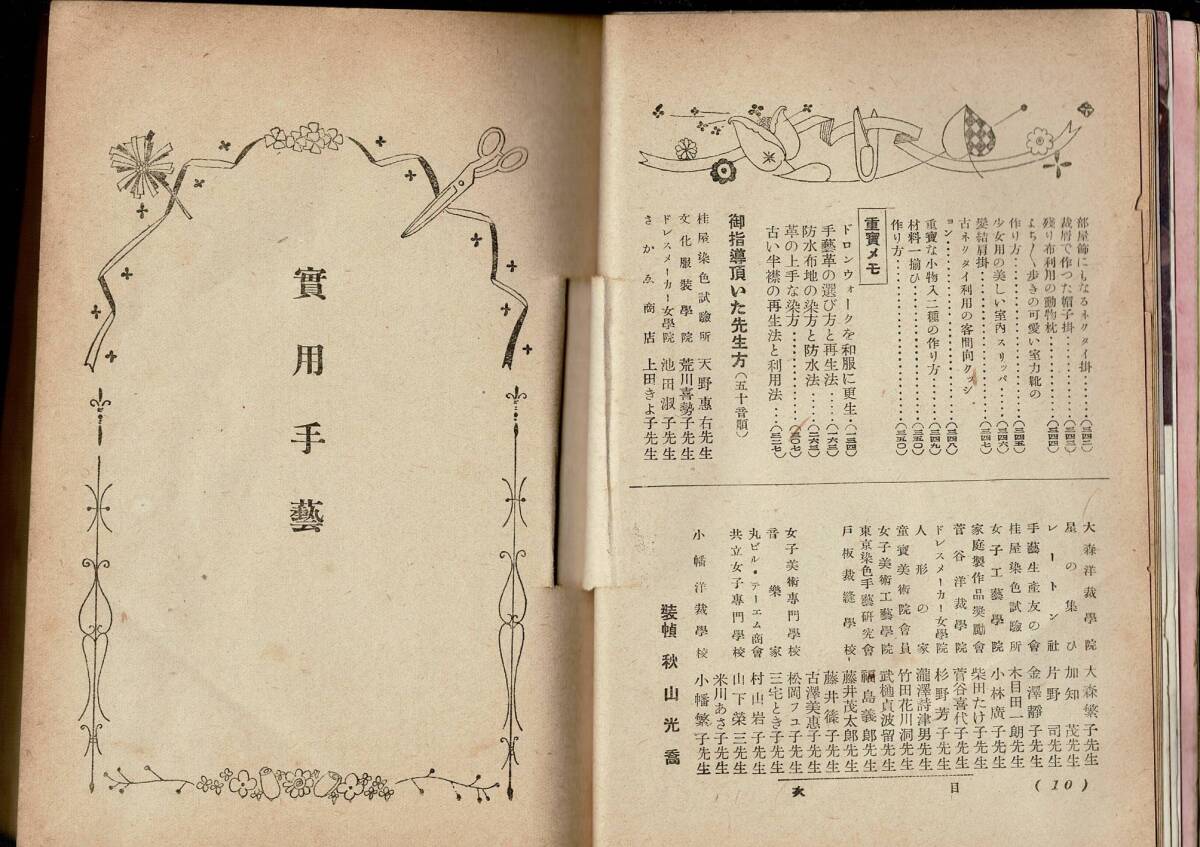 部屋飾にもなるネクタイ掛‥‥‥(三四二)
裁屑で作つた帽子掛‥‥‥(三四三)
殘り布利用の動物枕‥‥‥(三四四)
よち〳〵歩きの可愛い室内靴の
作り方‥‥‥(三四五)
少女用の美しい室內スリッパ‥‥‥(三四六)
髮結肩掛‥‥‥(三四七)
古ネクタイ利用の客間向クッシ
ョン‥‥‥(三四八)
重寶な小物入二種の作り方‥‥‥(三四九)
材料一揃ひ‥‥‥(三五〇)
作り方‥‥‥(三五〇)
重寶メモ
ドロンウォークを和服に更生‥(一三四)
手藝革の選び方と再生法‥‥(一六三)
防水布地の染方と防水法‥‥(二六三)
革の上手な染方‥‥‥(三〇七)
古い半襟の再生法と利用法‥‥(三二七)
御指導頂いた先生方(五十音順)
桂屋染色試驗所 天野惠右先生
文化服裝學院 荒川喜勢子先生
ドレスメーカー女學院 池田淑子先生
さかゑ商店 上田きよ子先生
大森洋裁學院 大森繁子先生
星の集ひ 加知茂先生
レートン社 片野司先生
手藝生產友の會 金澤靜子先生
桂屋染色試驗所 木目田一朗先生
女子工藝學院 小林廣子先生
家庭製作品奬勵會 柴田たけ子先生
菅谷洋裁學院 菅谷喜代子先生
ドレスメーカー女學院 杉野芳子先生
人形の家 瀧澤詩津男先生
童寶美術院會員 竹田花川洞先生
女子美術工藝學院 武樋貞波留先生
東京染色手藝研究會 福島義郎先生
戶板裁縫學校 藤井茂太郎先生
藤井篠子先生
古澤美惠子先生
女子美術專門學校 松岡フユ子先生
音樂家 三宅とき子先生
丸ビル・テーエム商會 村山岩子先生
共立女子專門學校 山下榮三先生
米川あさ子先生
小幡洋裁學校 小幡繁子先生
裝幀 秋山光喬
(10)
目
次
實用手藝